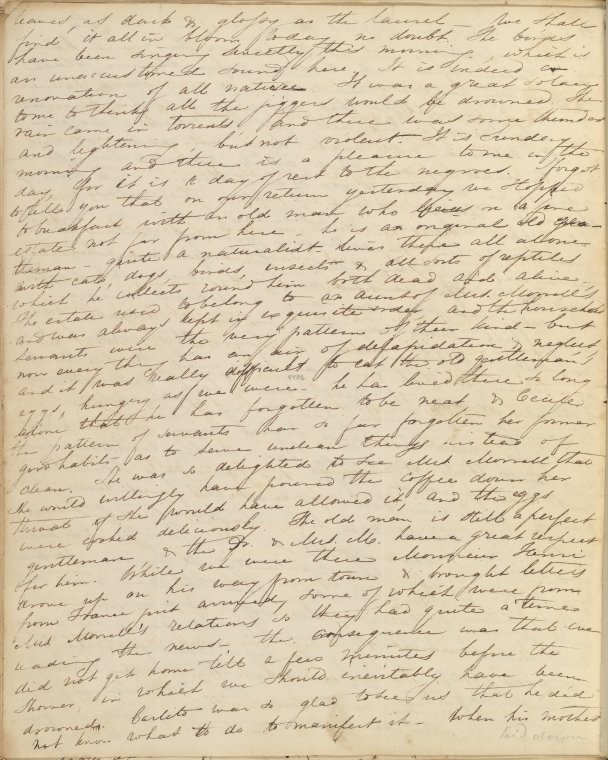 leaves, as dark & glossy as the laurel - We shall
find it all in bloom today no doubt. The birds
have been singing sweetly this morning, which is
an unaccustomed sound here. It is indeed a
renovation of all nature. It was a great solace
to me to think, all the jiggers would be drowned. The
rain came in torrents, and there was some thunder
and lightening, but not violent. It is Sunday
morning and there is a pleasure to me in the
day, for it is a day of rest to the negroes. I forgot
to tell you that on our return yesterday we stopped
to breakfast with an old man who lives on a fine
estate not far from here he is an original old gen-
tleman - quite a naturalist - lives there all alone
with cats, dogs, birds, insects & all sorts of reptiles
which he collects round him both dead and alive.
The estate used to belong to an aunt of Mrs. Morrell's
and was always kept in exquisite order, and the household
servants were the very pattern of their kind - but
now every thing has an air of delapidation & neglect
and it was really difficult to eat the old gentleman's
eggs, hungry as we were. he has lived there so long
alone that he has forgotten to be neat &
the pattern of servants has so far forgotten her former
good habits as to serve unclean things instead of
clean. She was so delighted to see Mrs Morrell that
she would willingly have poured the coffee down her
throat if she would have allowed it, and the eggs
were cooked deliciously. The old man is still a perfect
gentleman & the Dr. & Mrs. M. have a great respect
for him. While we were there Monsieur
drove up on his way from town & brought letters
from France just arrived, some of which were from
Mrs Morrell's relations so they had quite a time
reading the news - the consequence was that we
did not get home till a few minutes before the
shower, in which we should inevitably have been
drowned. Carlito was so glad to see us that he did
not know what to do to manifest it - When his mother
laid down